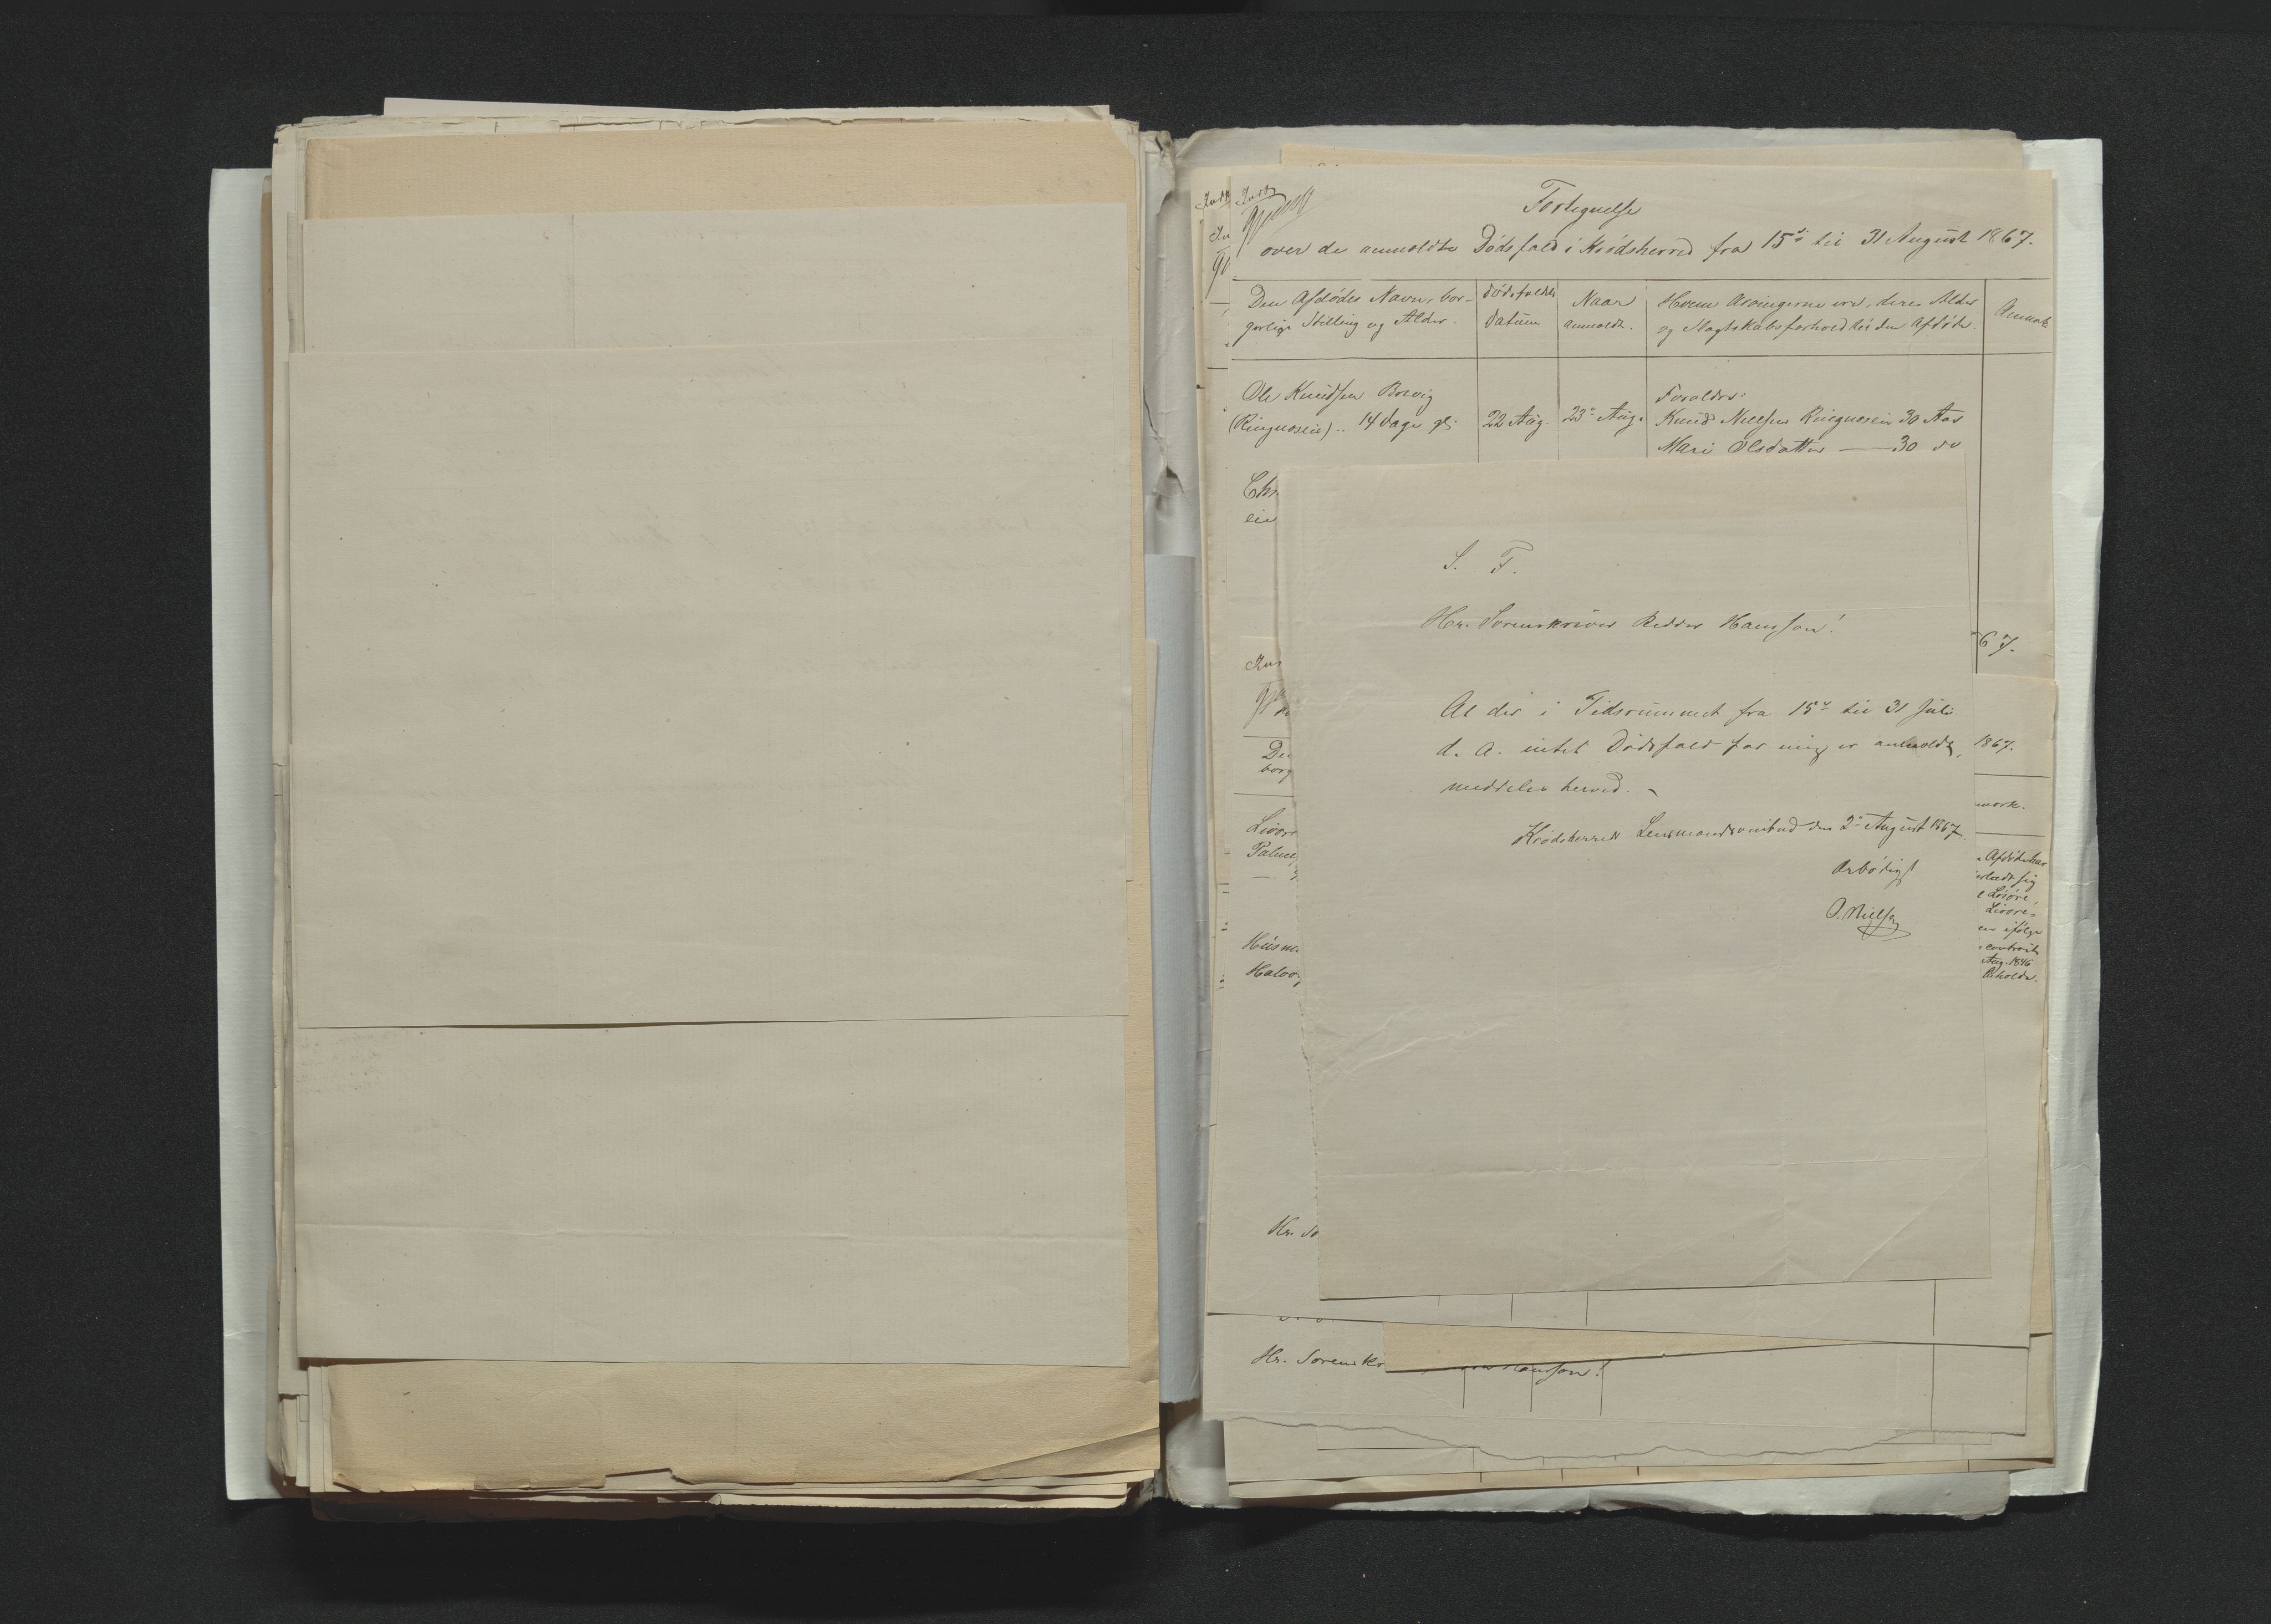 Fortegnelse
over de anmeldte Dødsfald i Krødsherred fra 15de til 31 August 1867.
Den Afdødes Navn, bor-
gerlige Stilling og Alder.
Dødsfaldets
Datum
Naar
anmeldt.
Hvem Arvingerne ere, deres Alder
og Slægtskabsforhold til den Afdøde.
Anmærk
Ole Knudsen Borvig
(Ringneseie) .. 14 Dage gl:
22 Aug.
23de Aug.
Forældre:
Knud Nielsen Ringneseie 30 Aar
Mari Olsdatter — 30 do
Chr
eie
S. T.
Hr. Sorenskriver Ridder Hansson!
At der i Tidsrummet fra 15de til 31 Juli
d. A. intet Dødsfald for mig er anmeldt,
meddeles herved. –
Krødsherreds Lensmandsombud den 2den August 1867
Ærbødigst
O. Nielsen
67.
1867.
mærk.
Afdøde har
Løsøre,
ifølge
Aug. 1846
Den
borg
Husm
Hr. So
Hr. Sorenskr
Hansson!